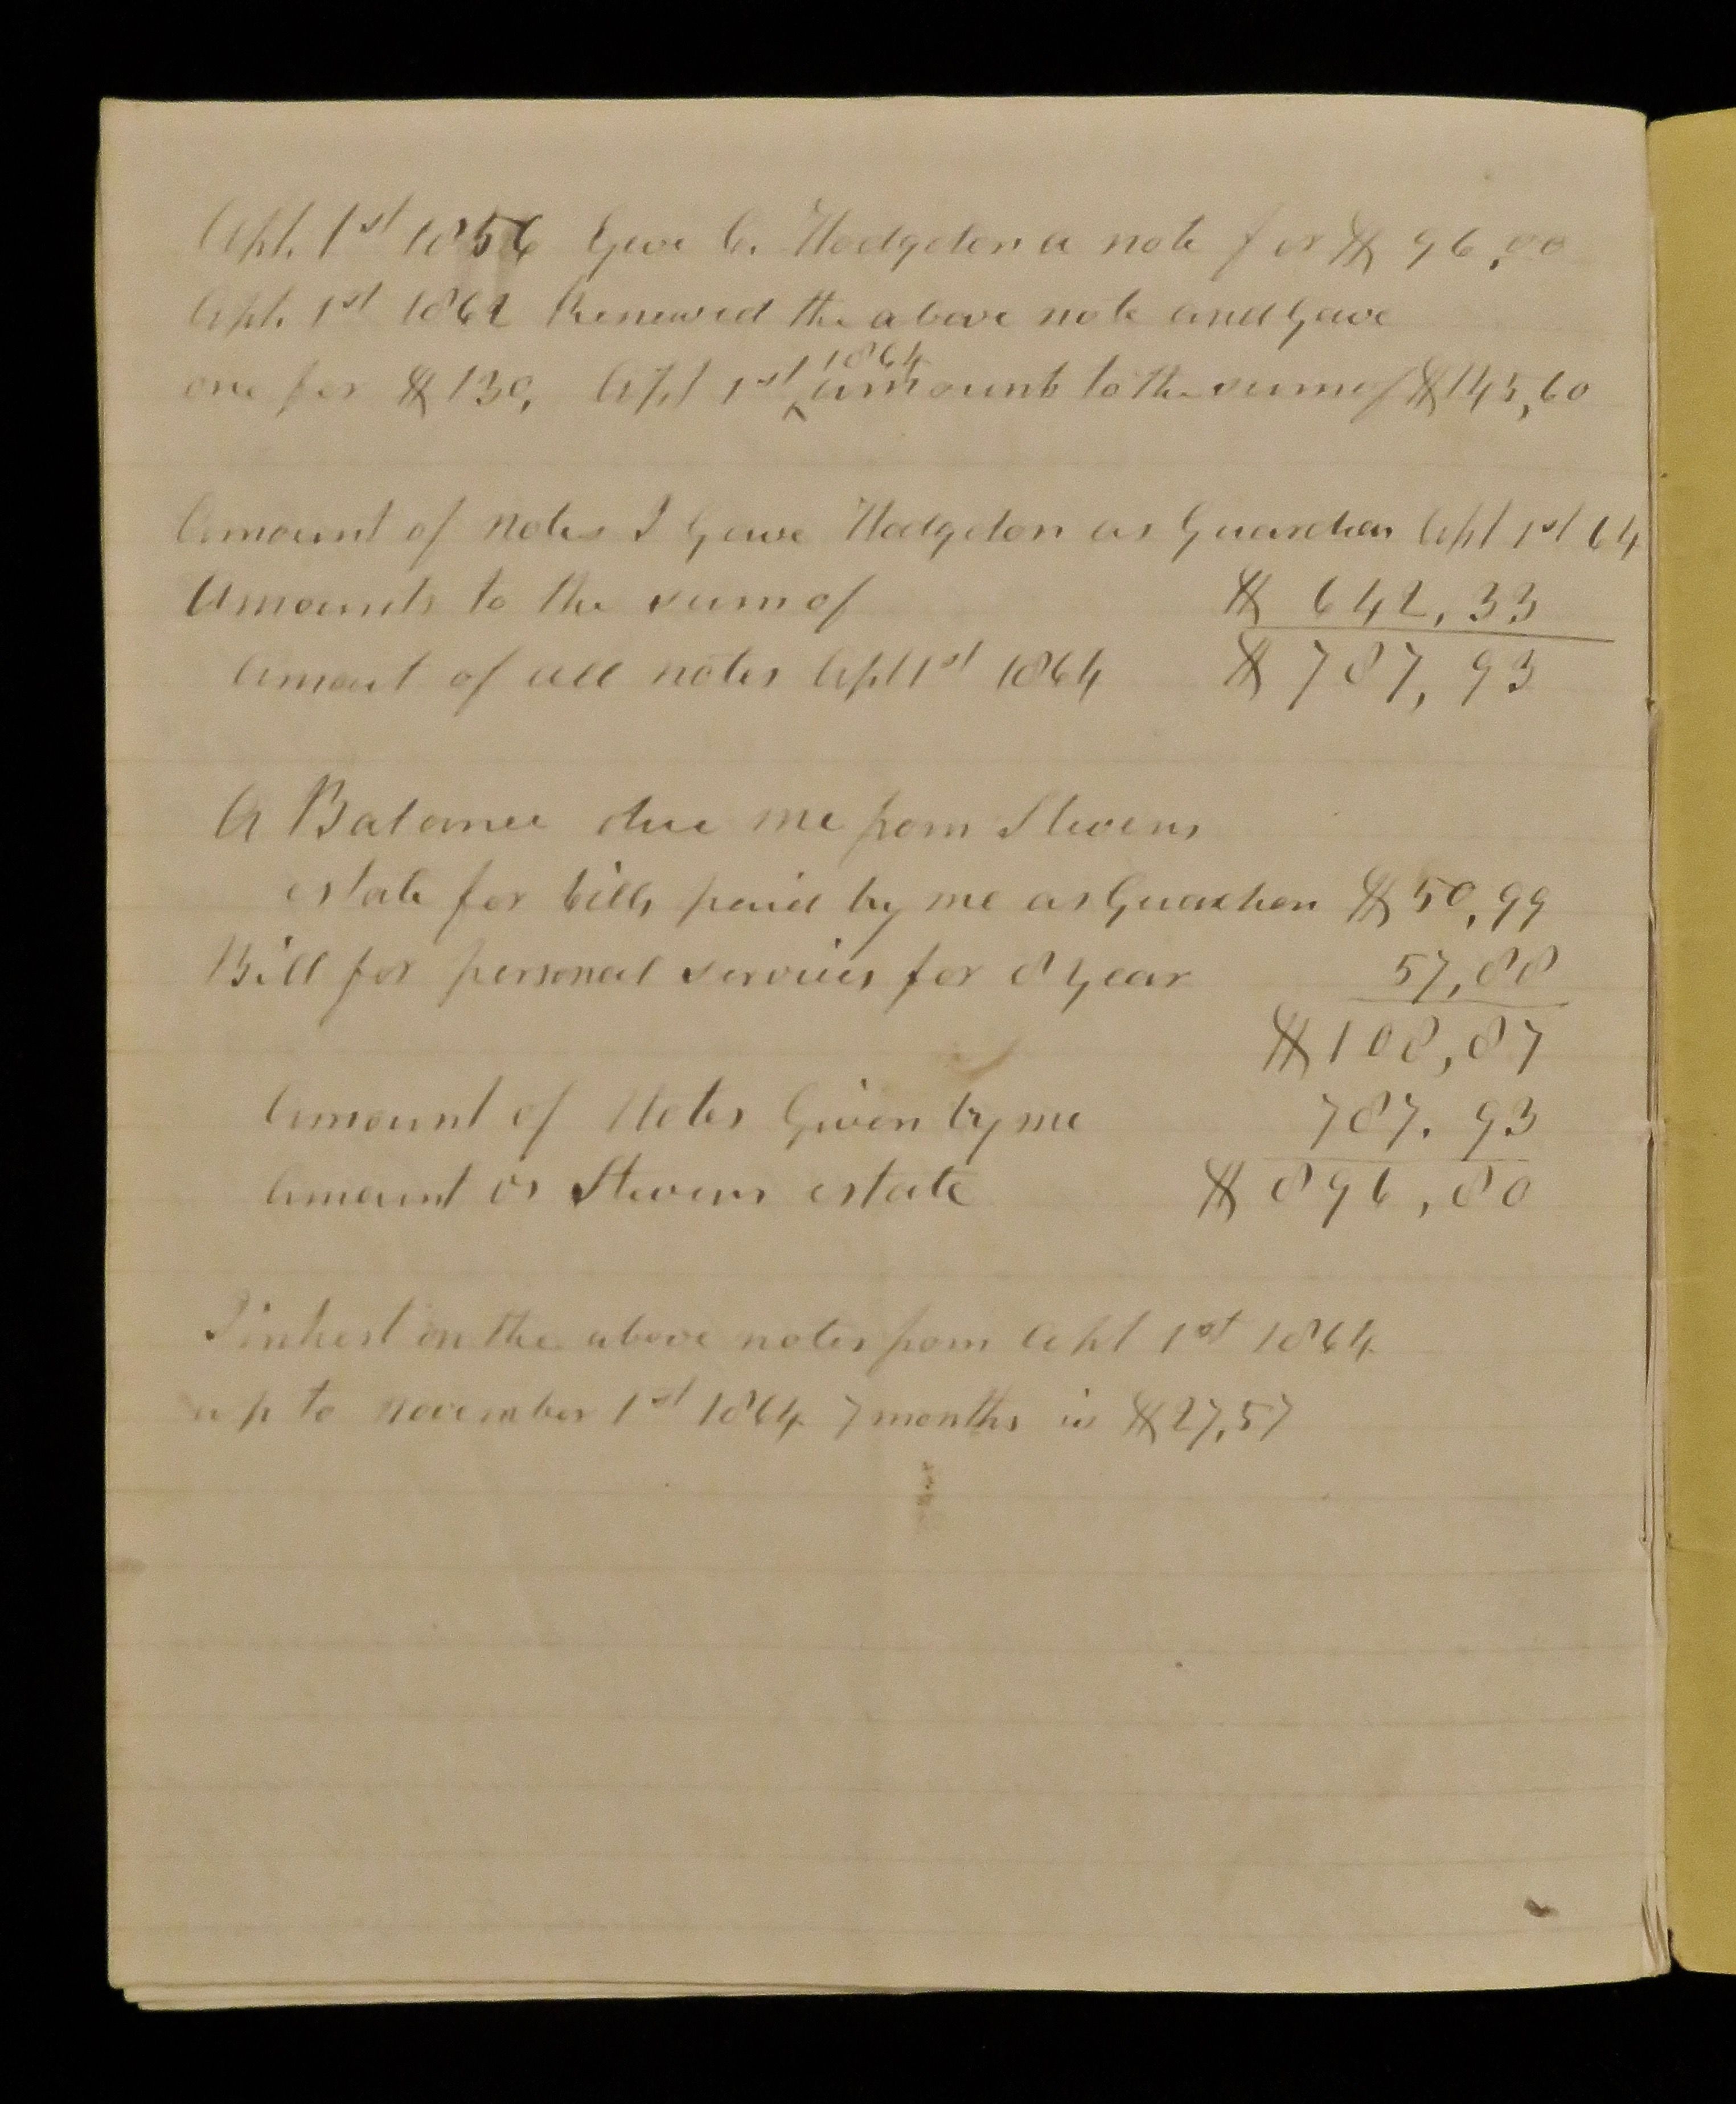 Apl. 1st 1856 Gave C. Hodgdon a note for $ 96,00
Apl. 1st 1862 Renewed the above note and Gave
1864
one for $130, Apl 1st ^ amounts to the sum of $145,60
Amount of Notes I Gave Hodgdon as Guardian Apl 1st 64
Amounts to the sum of $ 642,33
Amount of all notes Apl 1st 1864 $ 787,93
A Balance due me from Stevens
estate for bills paid by me as Guardian $50,99
Bill for personal services for 8 year 57,88
$108,87
Amount of Notes Given by me 787.93
Amount of Stevens estate $ 896,80
Intrest on the above notes from Apl 1st 1864
up to November 1st 1864 7 months is $27,57